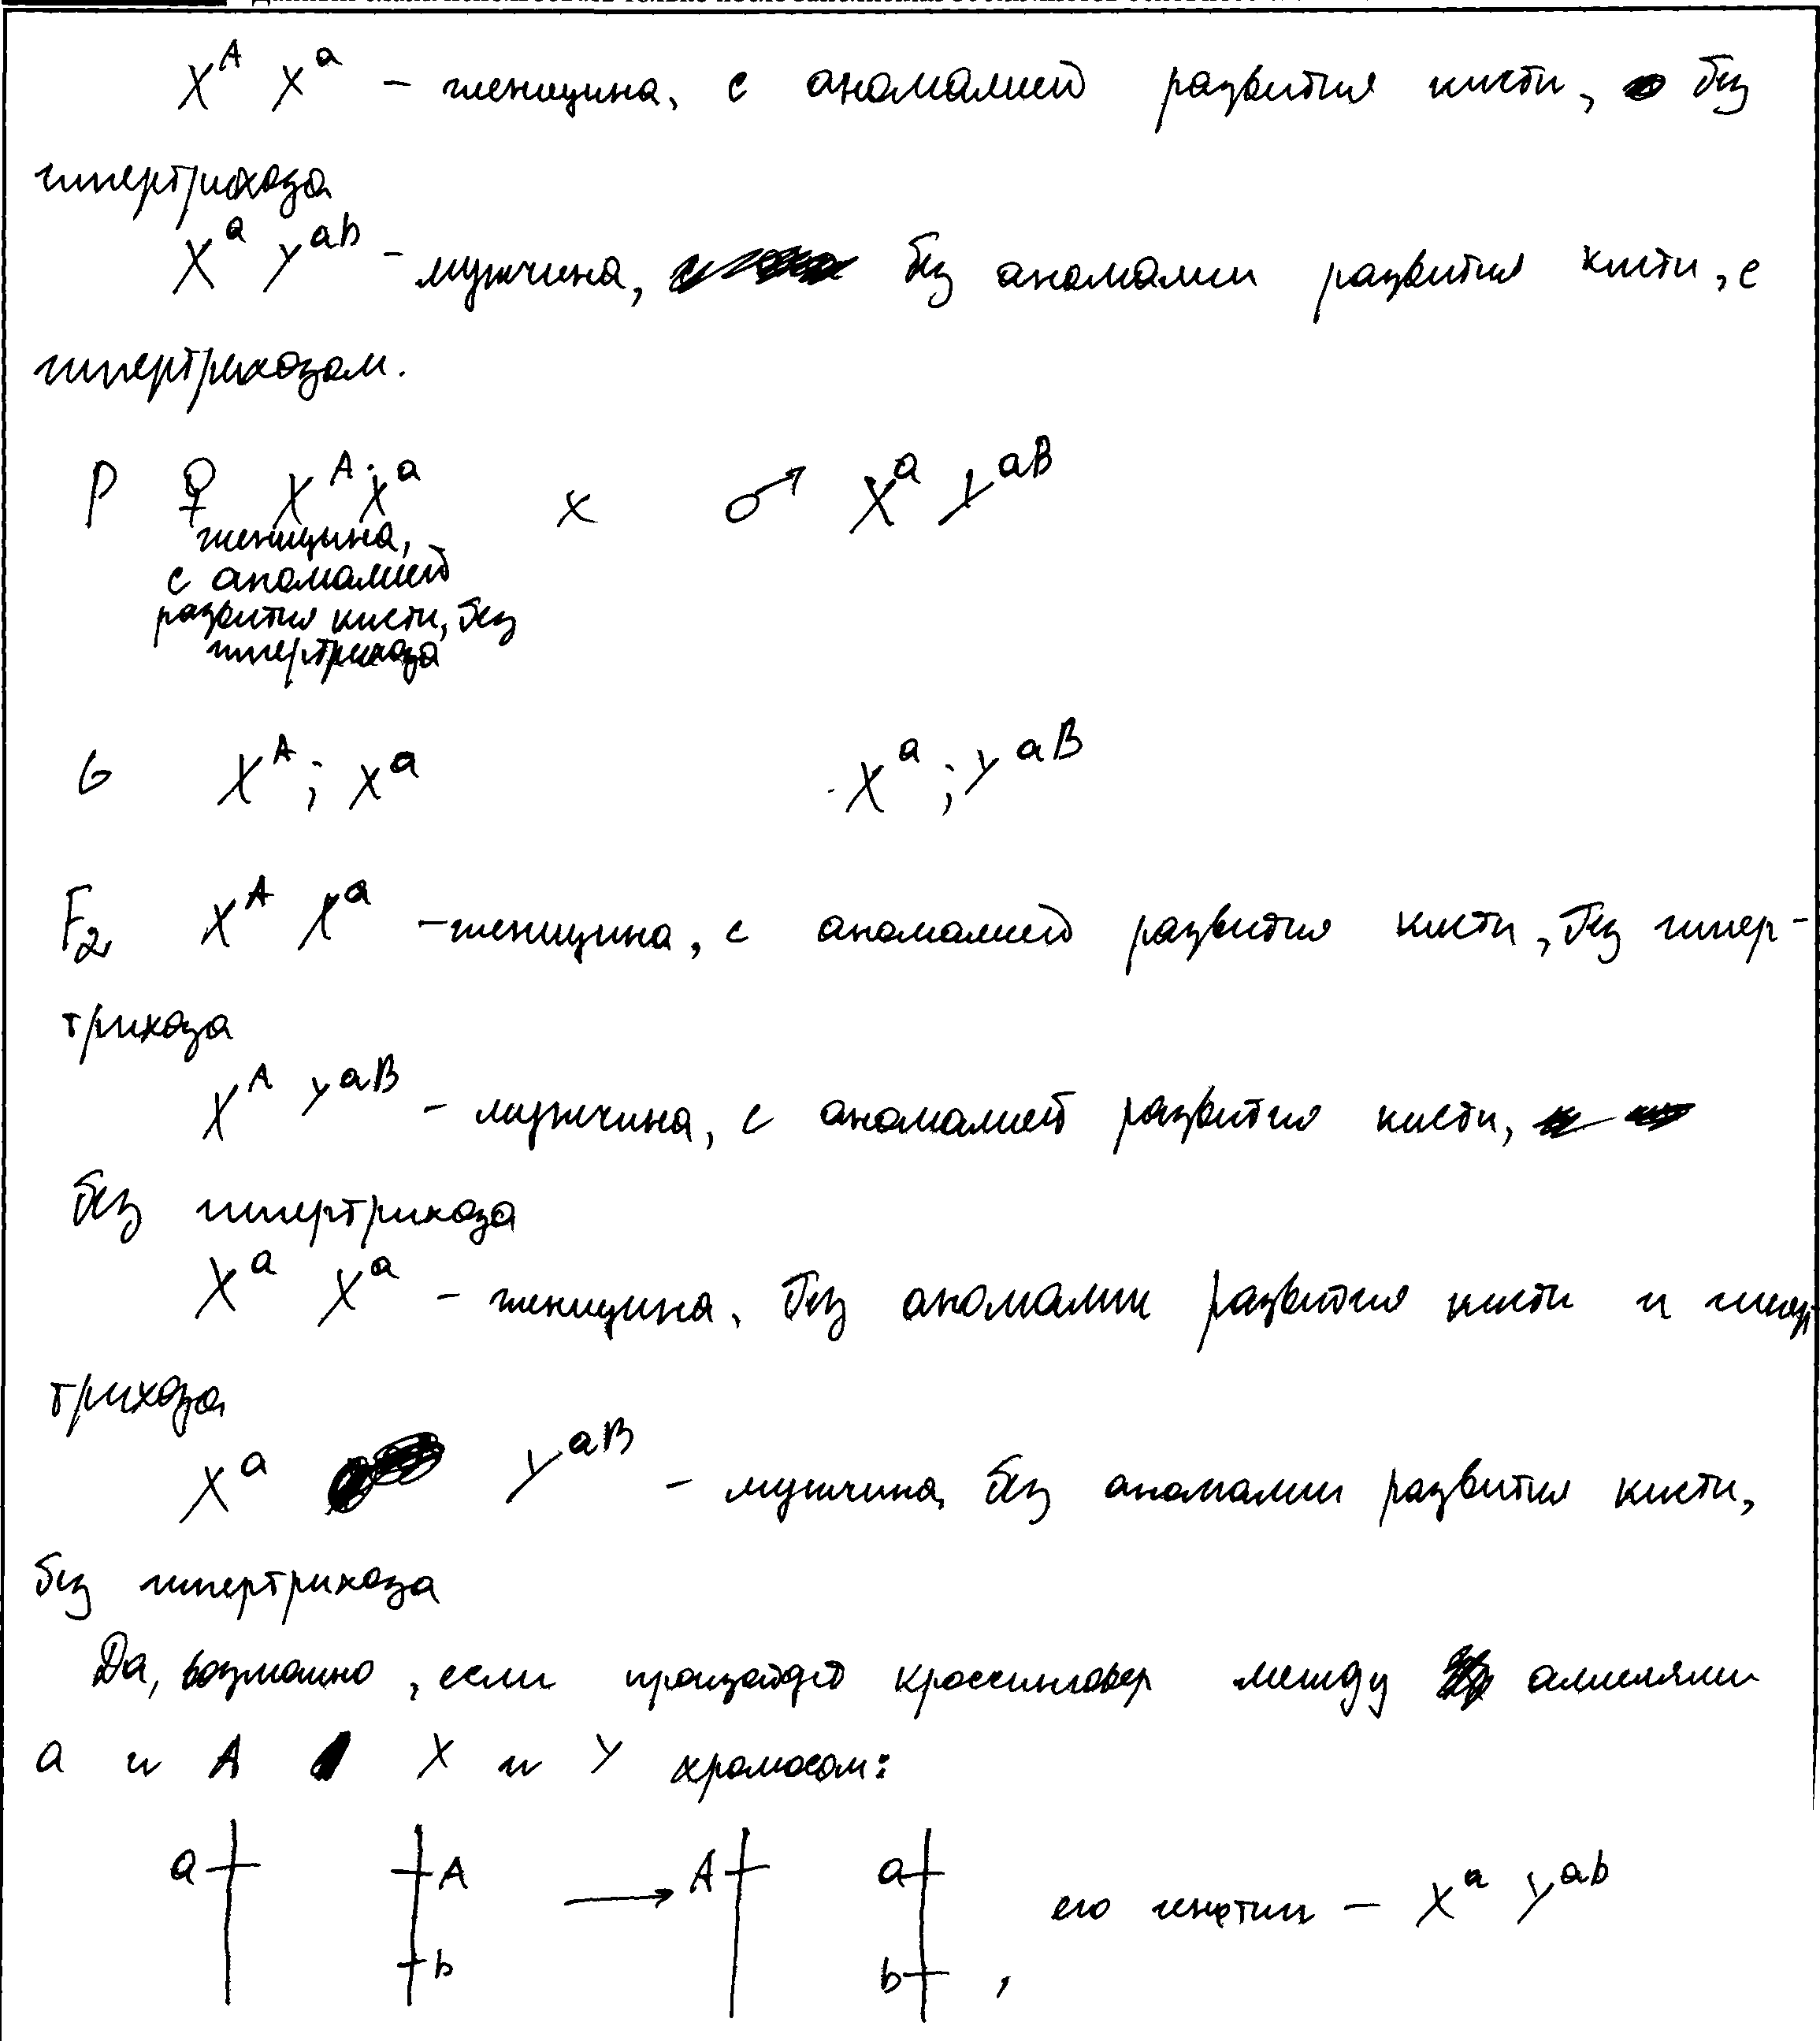 X^A X^a – женщина, с аномалией развития кисти, без
гипертрихоза
X^a Y^ab – мужчина, без аномалии развития кисти, с
гипертрихозом.
P ♀ X^A X^a x ♂ X^a Y^aB
женщина,
с аномалией
развития кисти, без
гипертрихоза
G X^A; X^a X^a; Y^aB
F2 X^A X^a – женщина, с аномалией развития кисти, без гипер-
трихоза
X^A Y^aB – мужчина, с аномалией развития кисти,
без гипертрихоза
X^a X^a – женщина, без аномалии развития кисти и гипер
трихоза
X^a Y^aB – мужчина, без аномалии развития кисти,
без гипертрихоза
Да, возможно, если произойдёт кроссинговер между аллелями
a и A X и Y хромосом:
a A → A a его генотип – X^a Y^ab
b b ,